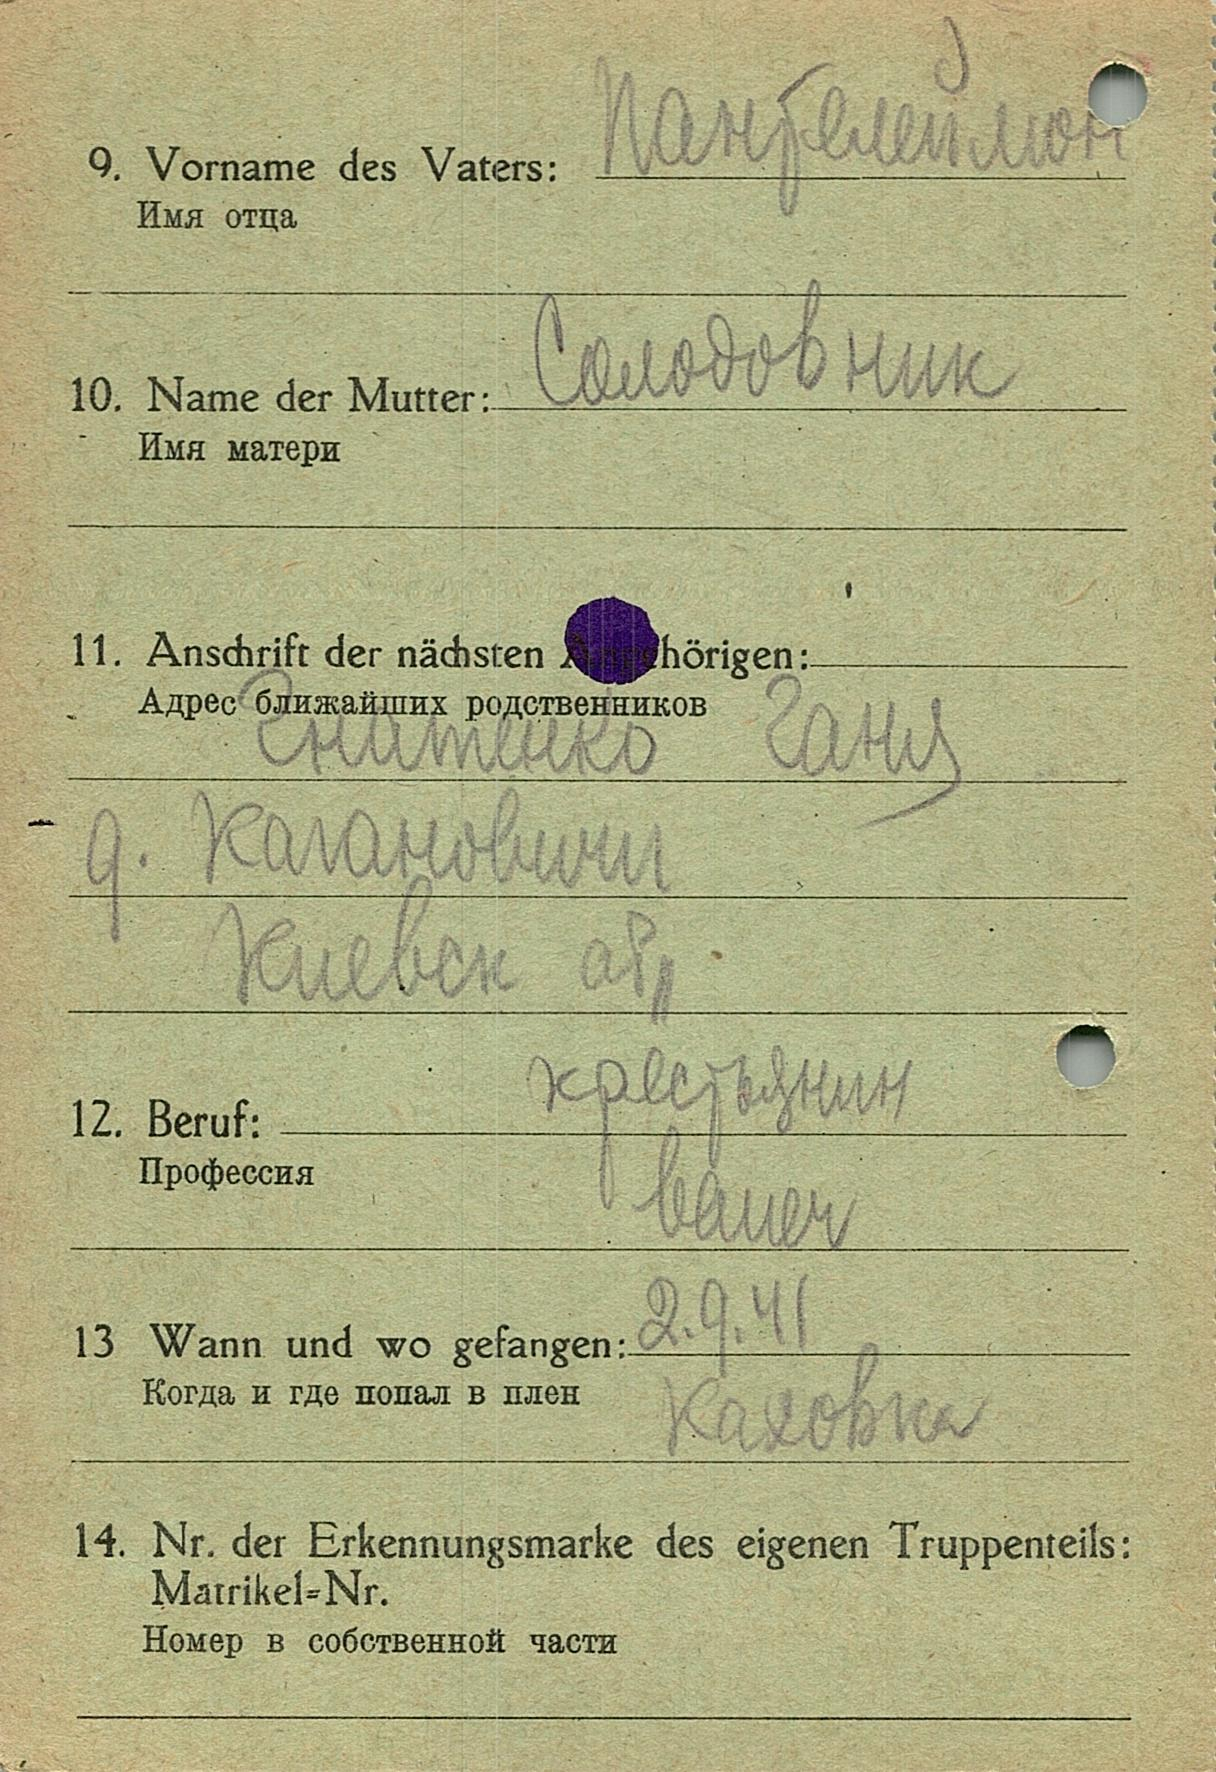 Пантелеймон
9. Vorname des Vaters:
Имя отца
Солодовник
10. Name der Mutter:
Имя матери
11. Anschrift der nächsten Angehörigen:
Адрес ближайших родственников
Гнатенко Ганя
д. Кагановичи
Киевск об„
крестьянин
12. Beruf:
Профессия
bauer
13 Wann und wo gefangen: 2.9.41
Когда и где попал в плен
Каховка
14. Nr. der Erkennungsmarke des eigenen Truppenteils:
Matrikel=Nr.
Номер в собственной части